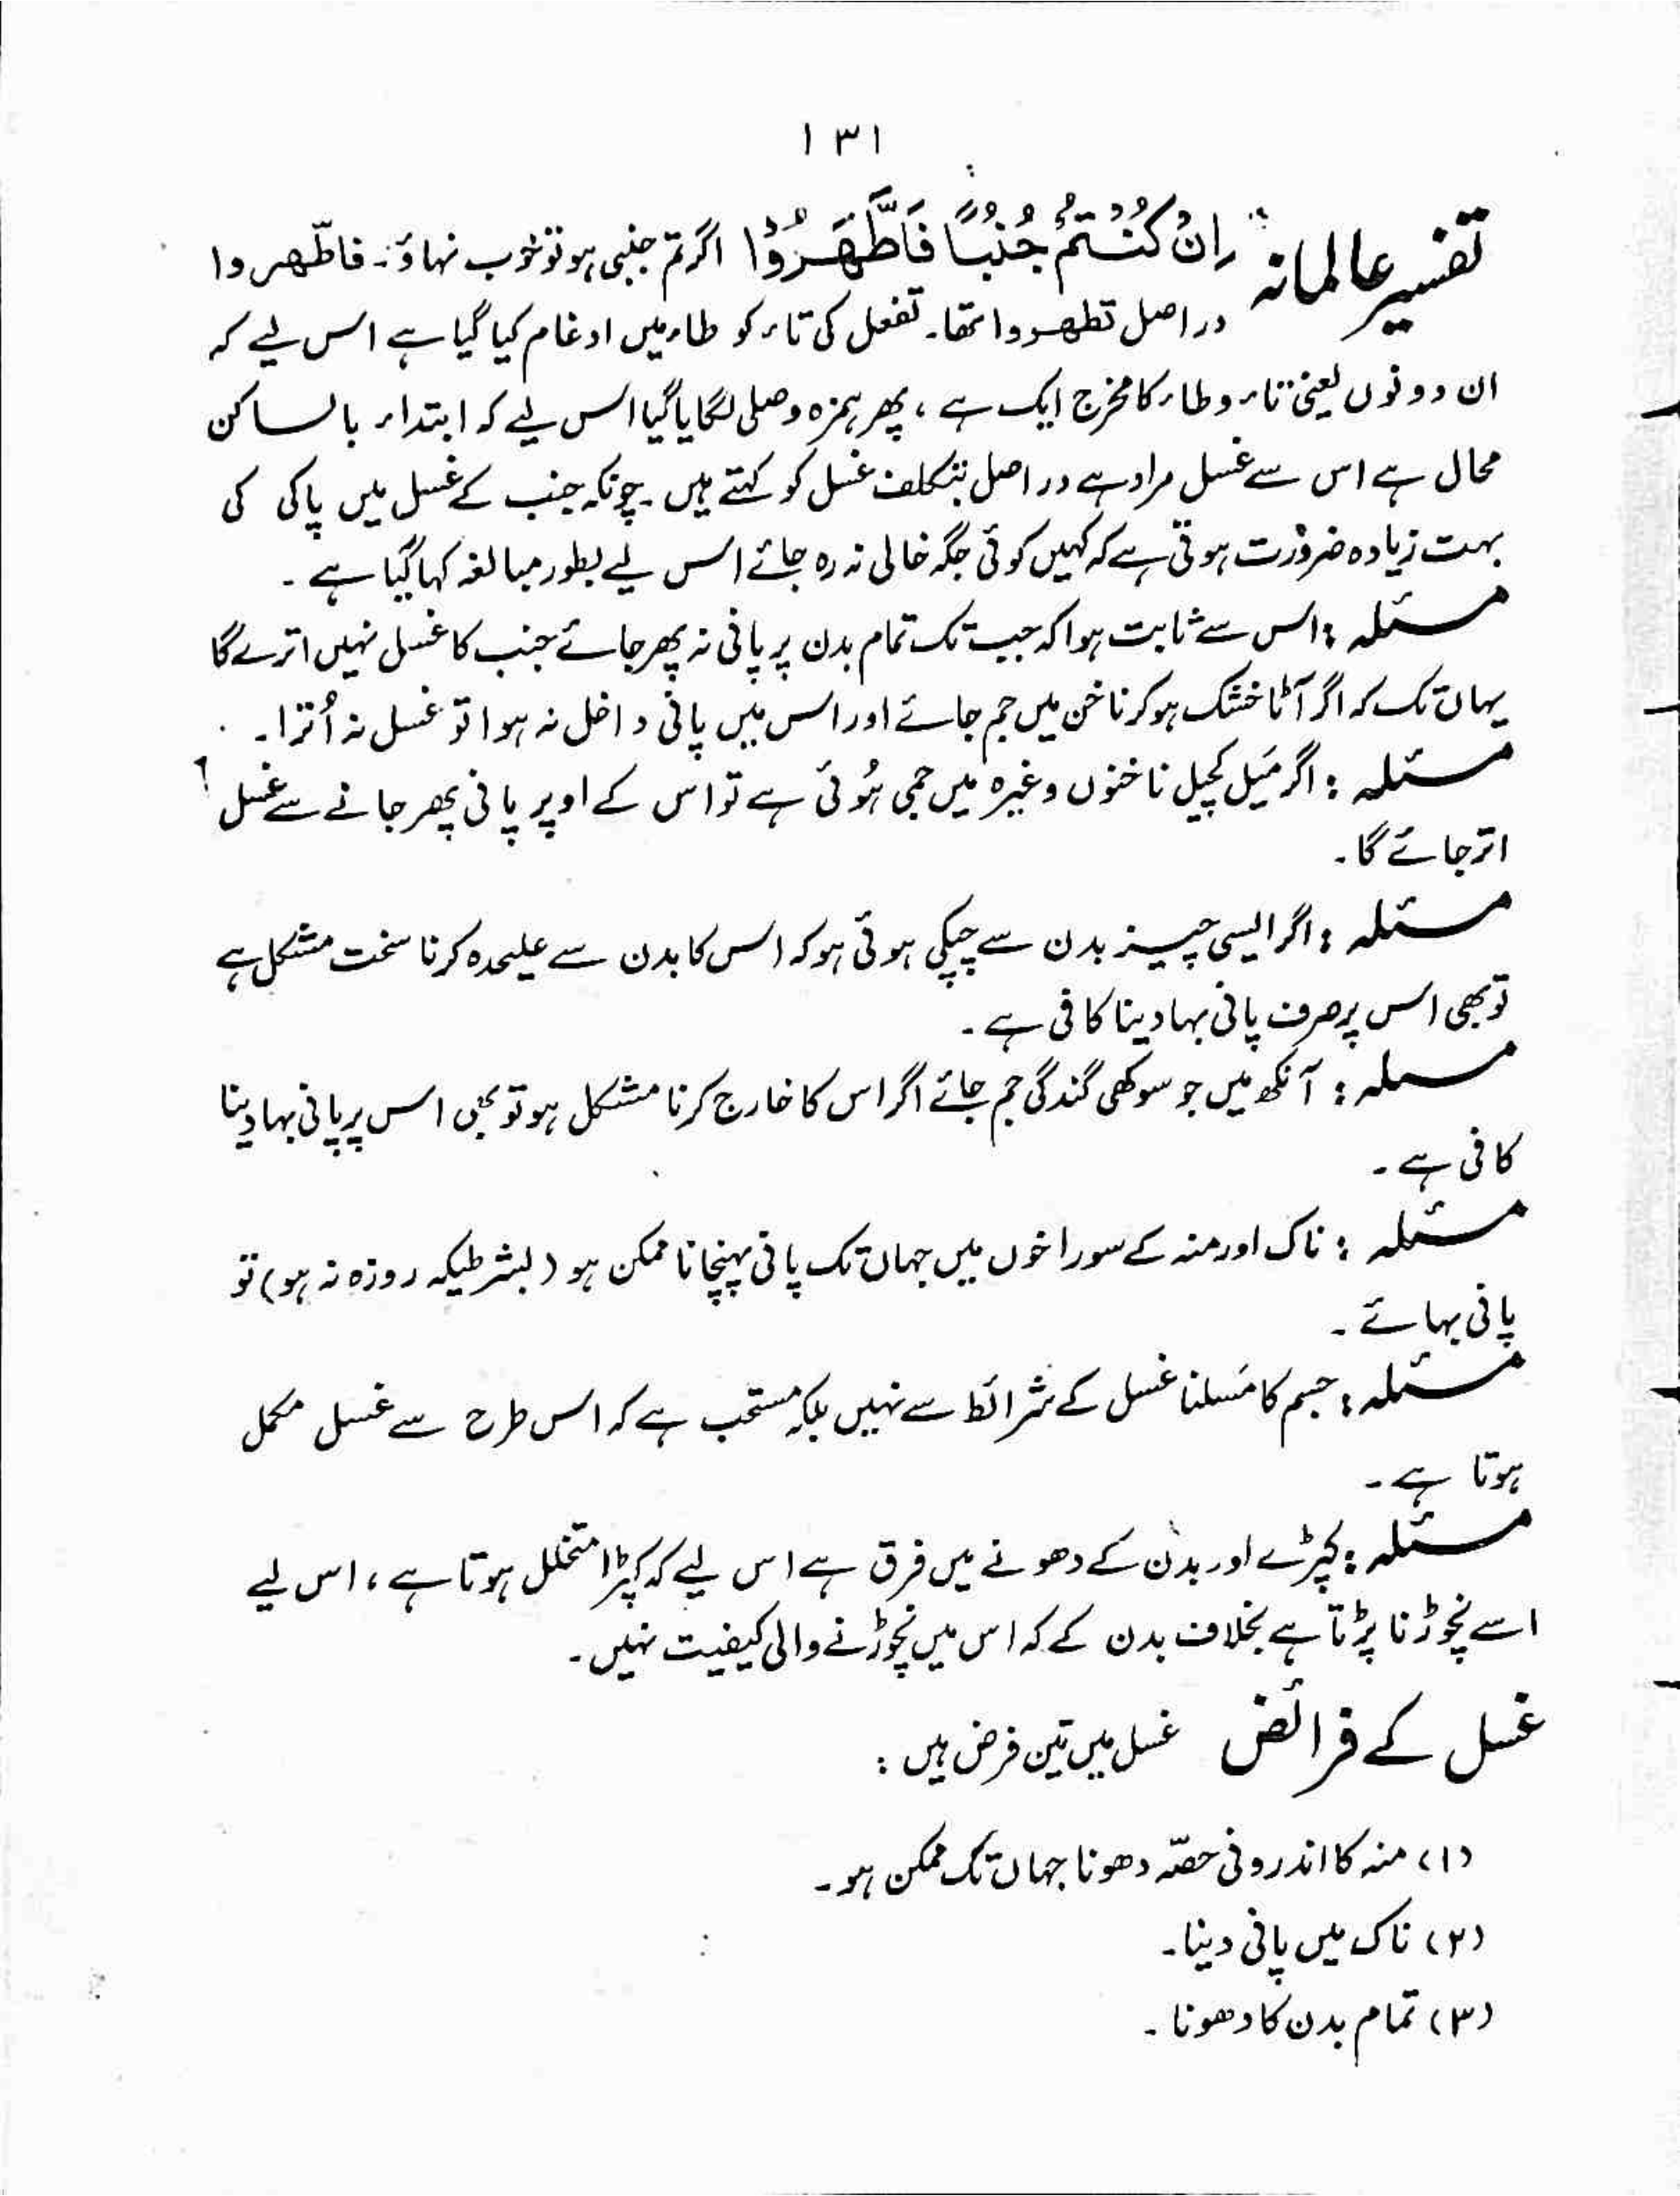 ۱۳۱
تفسیر عالمانہ اِنْ کُنْتُمْ جُنُبًا فَاطَّهَّرُوْا اگر تم جنبی ہو تو خوب نہاؤ۔ فاطّھروا
در اصل تطھروا تھا۔ تفعل کی تاء کو طاء میں ادغام کیا گیا ہے اس لیے کہ
ان دونوں یعنی تاء و طاء کا مخرج ایک ہے ، پھر ہمزہ وصلی لگایا گیا اس لیے کہ ابتداء بالساکن
محال ہے اس سے غسل مراد ہے در اصل بتکلف غسل کو کہتے ہیں۔ چونکہ جنب کے غسل میں پاکی کی
بہت زیادہ ضرورت ہوتی ہے کہ کہیں کوئی جگہ خالی نہ رہ جائے اس لیے بطور مبالغہ کہا گیا ہے ۔
مسئلہ : اس سے ثابت ہوا کہ جب تک تمام بدن پر پانی نہ پھر جائے جنب کا غسل نہیں اترے گا
یہاں تک کہ اگر آٹا خشک ہو کر ناخن میں جم جائے اور اس میں پانی داخل نہ ہوا تو غسل نہ اُترا۔
مسئلہ : اگر مَیل کچیل ناخنوں وغیرہ میں جمی ہُوئی ہے تو اس کے اوپر پانی پھر جانے سے غسل
اتر جائے گا ۔
مسئلہ : اگر ایسی چیز بدن سے چپکی ہوئی ہو کہ اس کا بدن سے علیحدہ کرنا سخت مشکل ہے
تو بھی اس پر صرف پانی بہا دینا کافی ہے ۔
مسئلہ : آنکھ میں جو سوکھی گندگی جم جائے اگر اس کا خارج کرنا مشکل ہو تو بھی اس پر پانی بہا دینا
کافی ہے ۔
مسئلہ : ناک اور منہ کے سوراخوں میں جہاں تک پانی پہنچانا ممکن ہو (بشرطیکہ روزہ نہ ہو) تو
پانی بہائے ۔
مسئلہ : جسم کا مَسلنا غسل کے شرائط سے نہیں بلکہ مستحب ہے کہ اس طرح سے غسل مکمل
ہوتا ہے ۔
مسئلہ : کپڑے اور بدن کے دھونے میں فرق ہے اس لیے کہ کپڑا متخلل ہوتا ہے ، اس لیے
اسے نچوڑنا پڑتا ہے بخلاف بدن کے کہ اس میں نچوڑنے والی کیفیت نہیں ۔
غسل کے فرائض غسل میں تین فرض ہیں :
(۱) منہ کا اندرونی حصّہ دھونا جہاں تک ممکن ہو۔
(۲) ناک میں پانی دینا۔
(۳) تمام بدن کا دھونا ۔